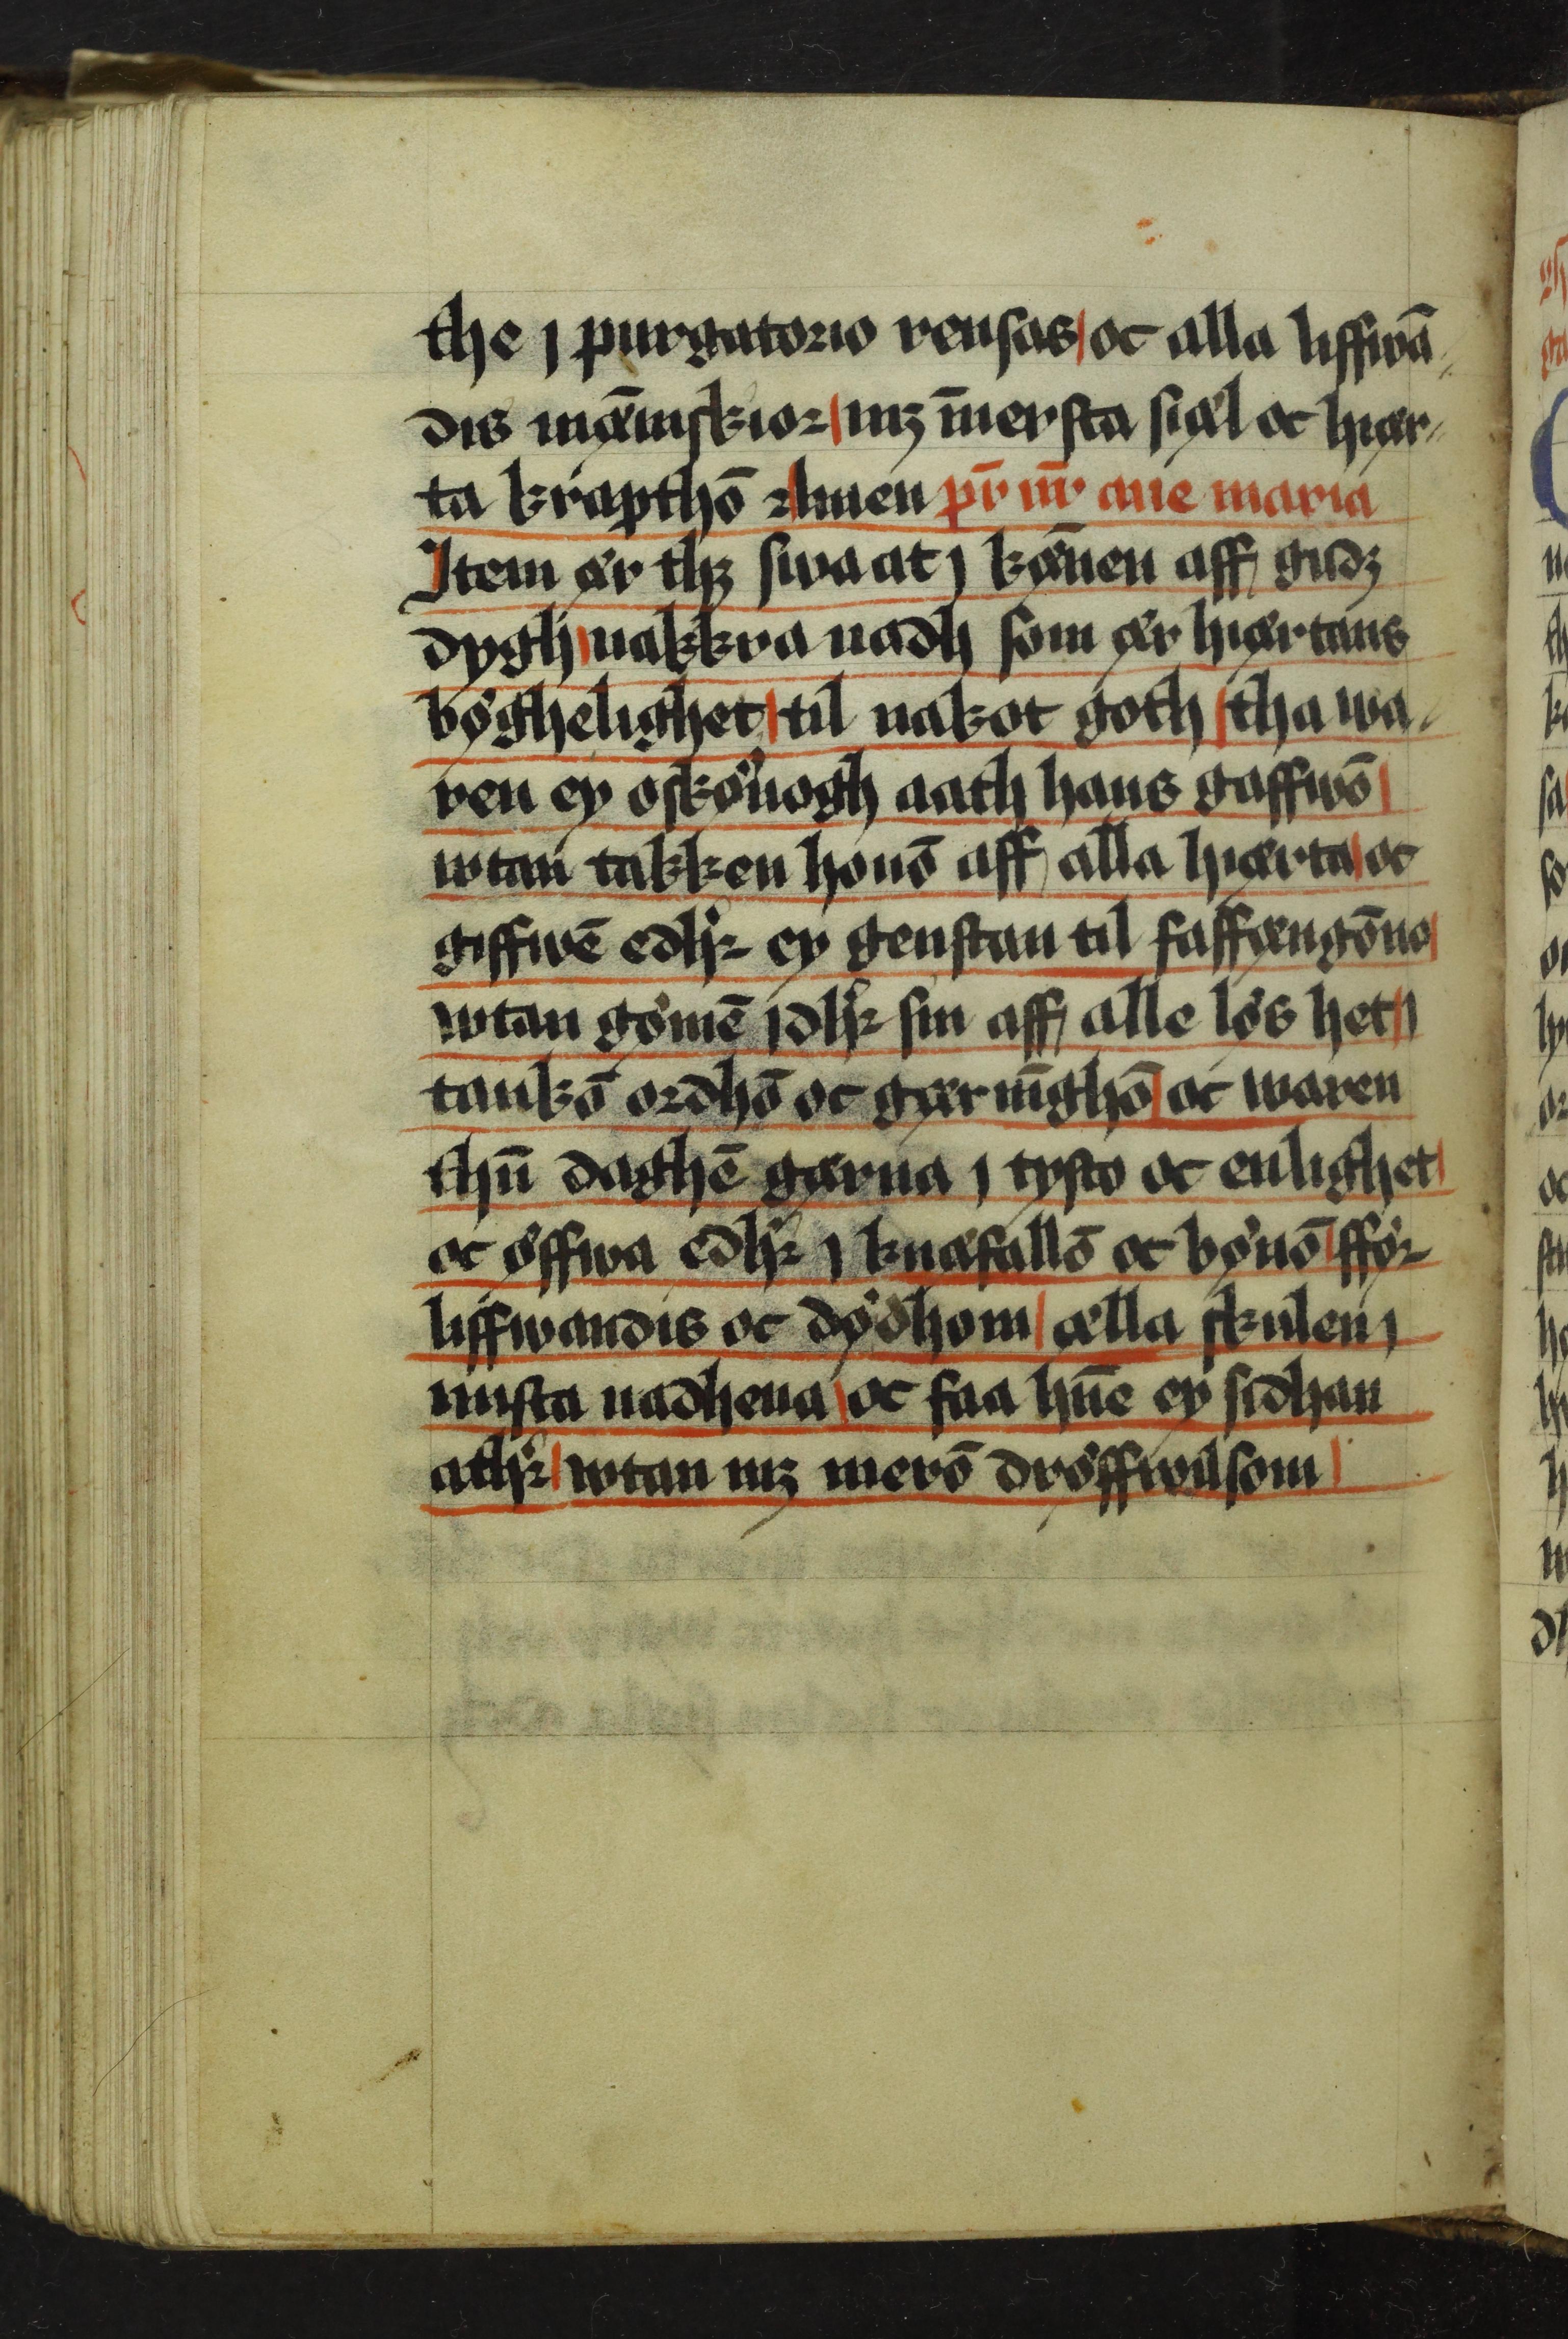 the j purgatorio rensas oc alla liffwā
dis mæ̅niskior mz īnersta siæl oc hiær
ta krapthō Amen pr̄ nr̄ aue maria
Jtem ær thz swa at j kæ̅nen aff gudz
dygh nakkra nadh som ær hiærtans
bøghelighet til nakot goth tha wa
ren ey oskønogh aath hans gaffwō
wtan takken honō aff alla hiærta oc
giffwē edhr ey genstan til faffængō̅no
wtan gømē jdhr sin aff alle løshet j
tankō ordhō oc gærnīghō oc waren
thn̄ daghē gærna j tysto oc enlighet
oc øffwa edhr j knæfallō oc bønō ffør
liffwandis oc dødhom ælla skulen j
mista nadhena oc faa hn̄e ey sidhan
athr wtan mz merō drøffwilsom